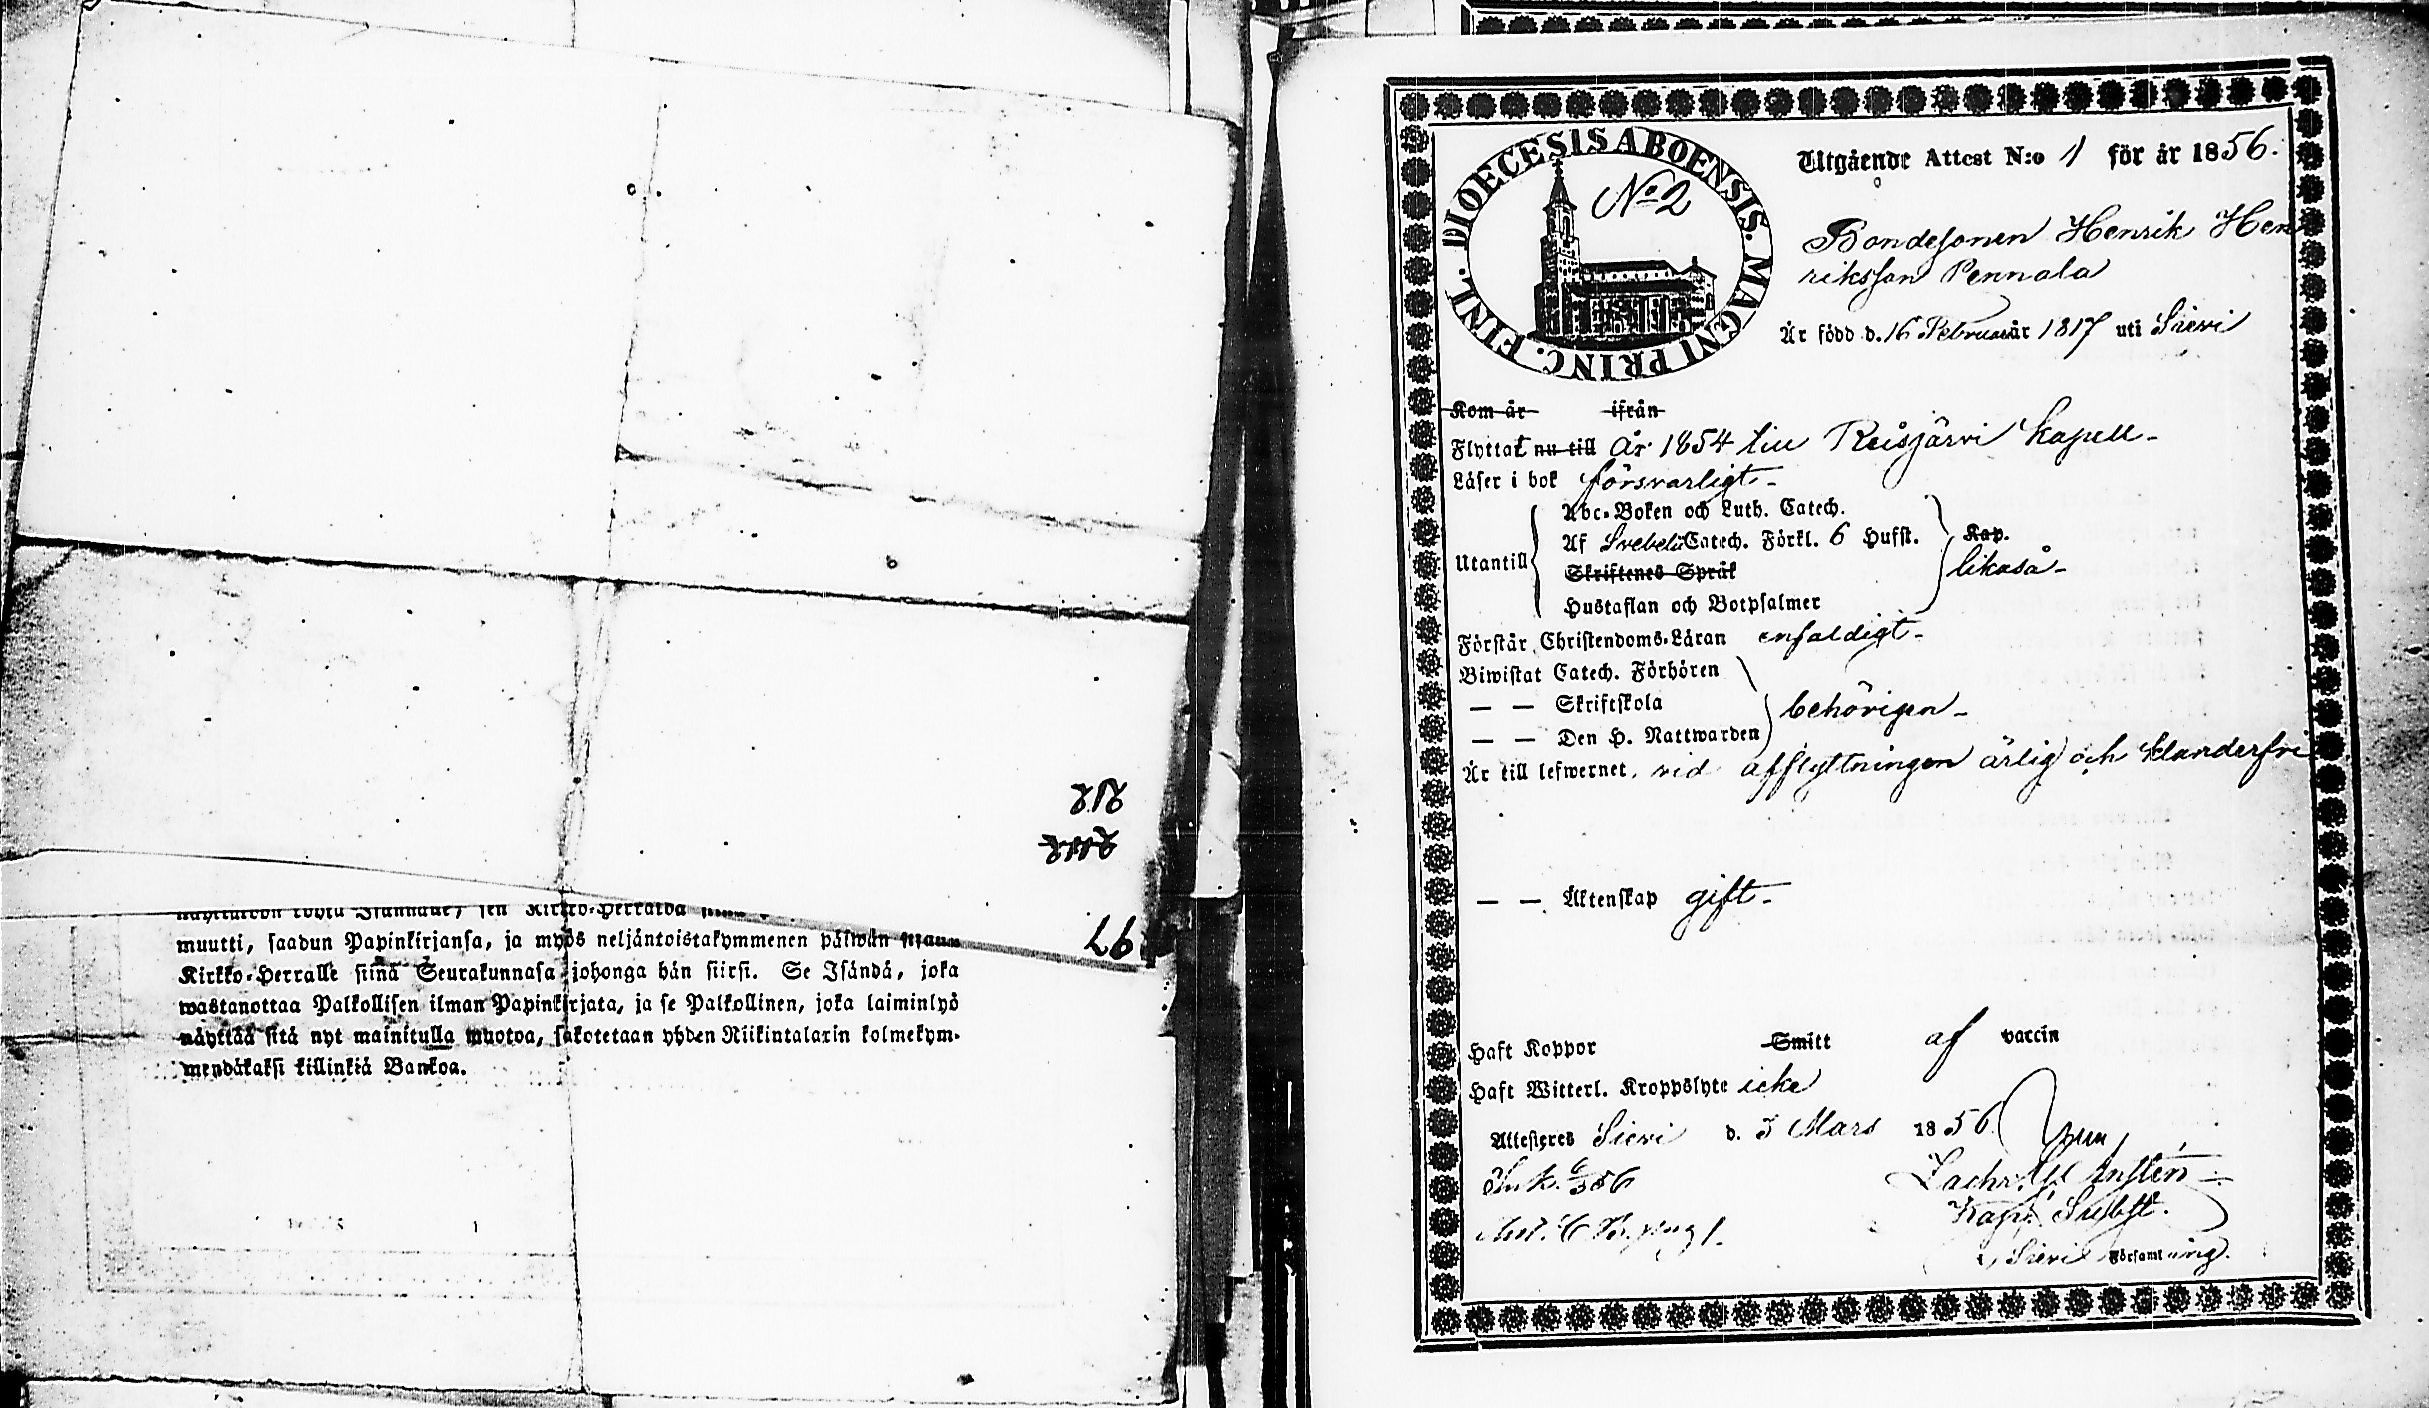 muutti, saadun Papinkirjansa, ja myös neljäntoistakymmenen päiwän
Kirkko-Herralle siinä Seurakunnasa johonga hän siirsi. Se Isändä, joka
wastanottaa Palkollisen ilman Papinkirjata, ja se Palkollinen, joka laiminlyö
näyttää sitä nyt mainitulla muotoa, sakotetaan yhden Riikintalarin kolmekym-
mendäkaksi killinkiä Bankoa.
97
DIOECESIS ABOENSIS. MAGNI PRINC. FINL.
No 2
Utgående Attest N:o 1 för år 1856.
Bondesonen Henrik Hen
riksson Pennala
Är född d. 16 Februar 1817 uti Sievi
Kom år ifrån
Flyttat nu till år 1854 till Reisjärvi Kapell -
Läser i bok försvarligt -
Utantill
Abc-Boken och Luth. Catech.
Af Svebelii Catech. Förkl. 6 Hufst. Kap.
Skriftenes Språk
likaså -
Hustaflan och Botpsalmer
Förstår Christendoms-Läran enfaldigt -
Biwistat Catech. Förhören
— — Skriftskola
behörigen -
— — Den H. Nattwarden
Är till lefwernet vid afflyttningen ärlig och klanderfri
— — Äktenskap gift -
Haft Koppor Smitt af vaccin
Haft Witterl. Kroppslyte icke
Attesteres Sievi d. 5 Mars 1856
Ink. 6/3 56
Kapl.
Sievi Församling.